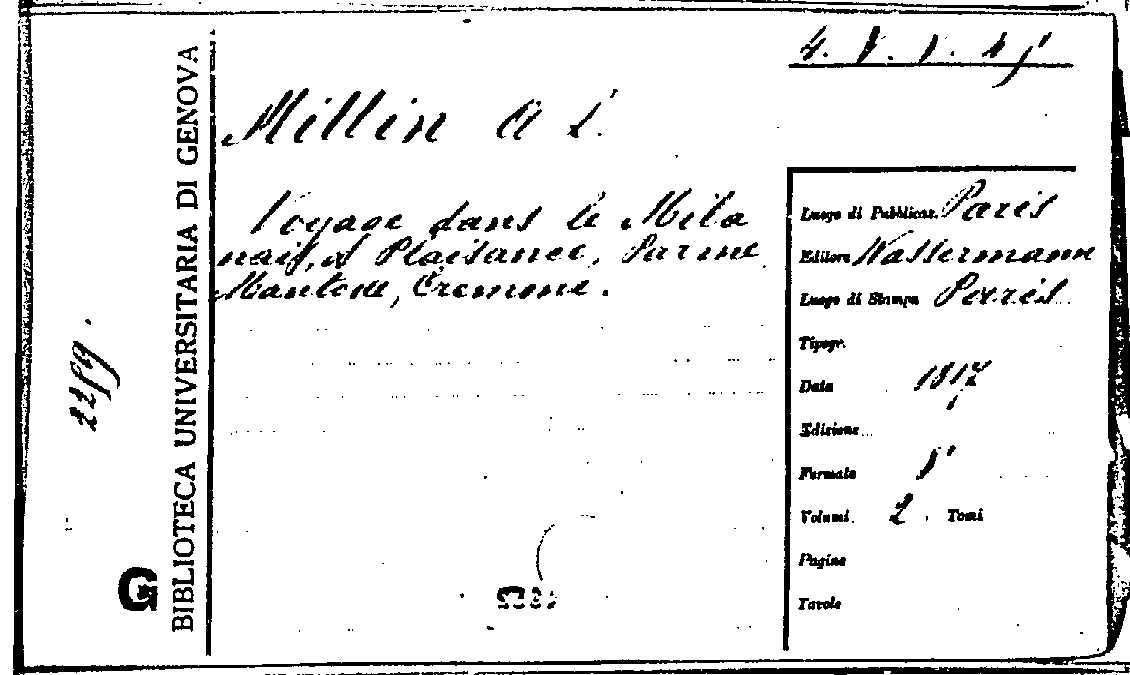 BIBLIOTECA UNIVERSITARIA DI GENOVA
G
Millin A L.
Voyage dans le Mila
nais, à Plaisance, Parme
Mantoue, Cremone.
Luogo di Pubblicaz. Paris
Editore Wassermann
Luogo di Stampa Paris
Tipogr.
Data 1817
Edizione
Formato 8°
Volumi 2. Tomi
Pagine
Tavole